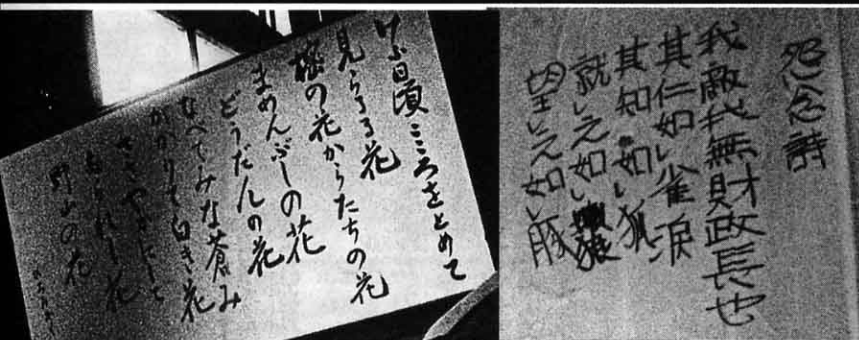 けふ日頃こころをとめて
見らるる花
の花からたちの花
まめんぶしの花
どうだんの花
なべてみな蒼み
がかりて白き花
ささやかにして
られし花
野山の花
怨念詩
我敵無財政長也
其仁如レ雀涙
其知如レ狐
就レ之如レ狼
望レ之如レ豚